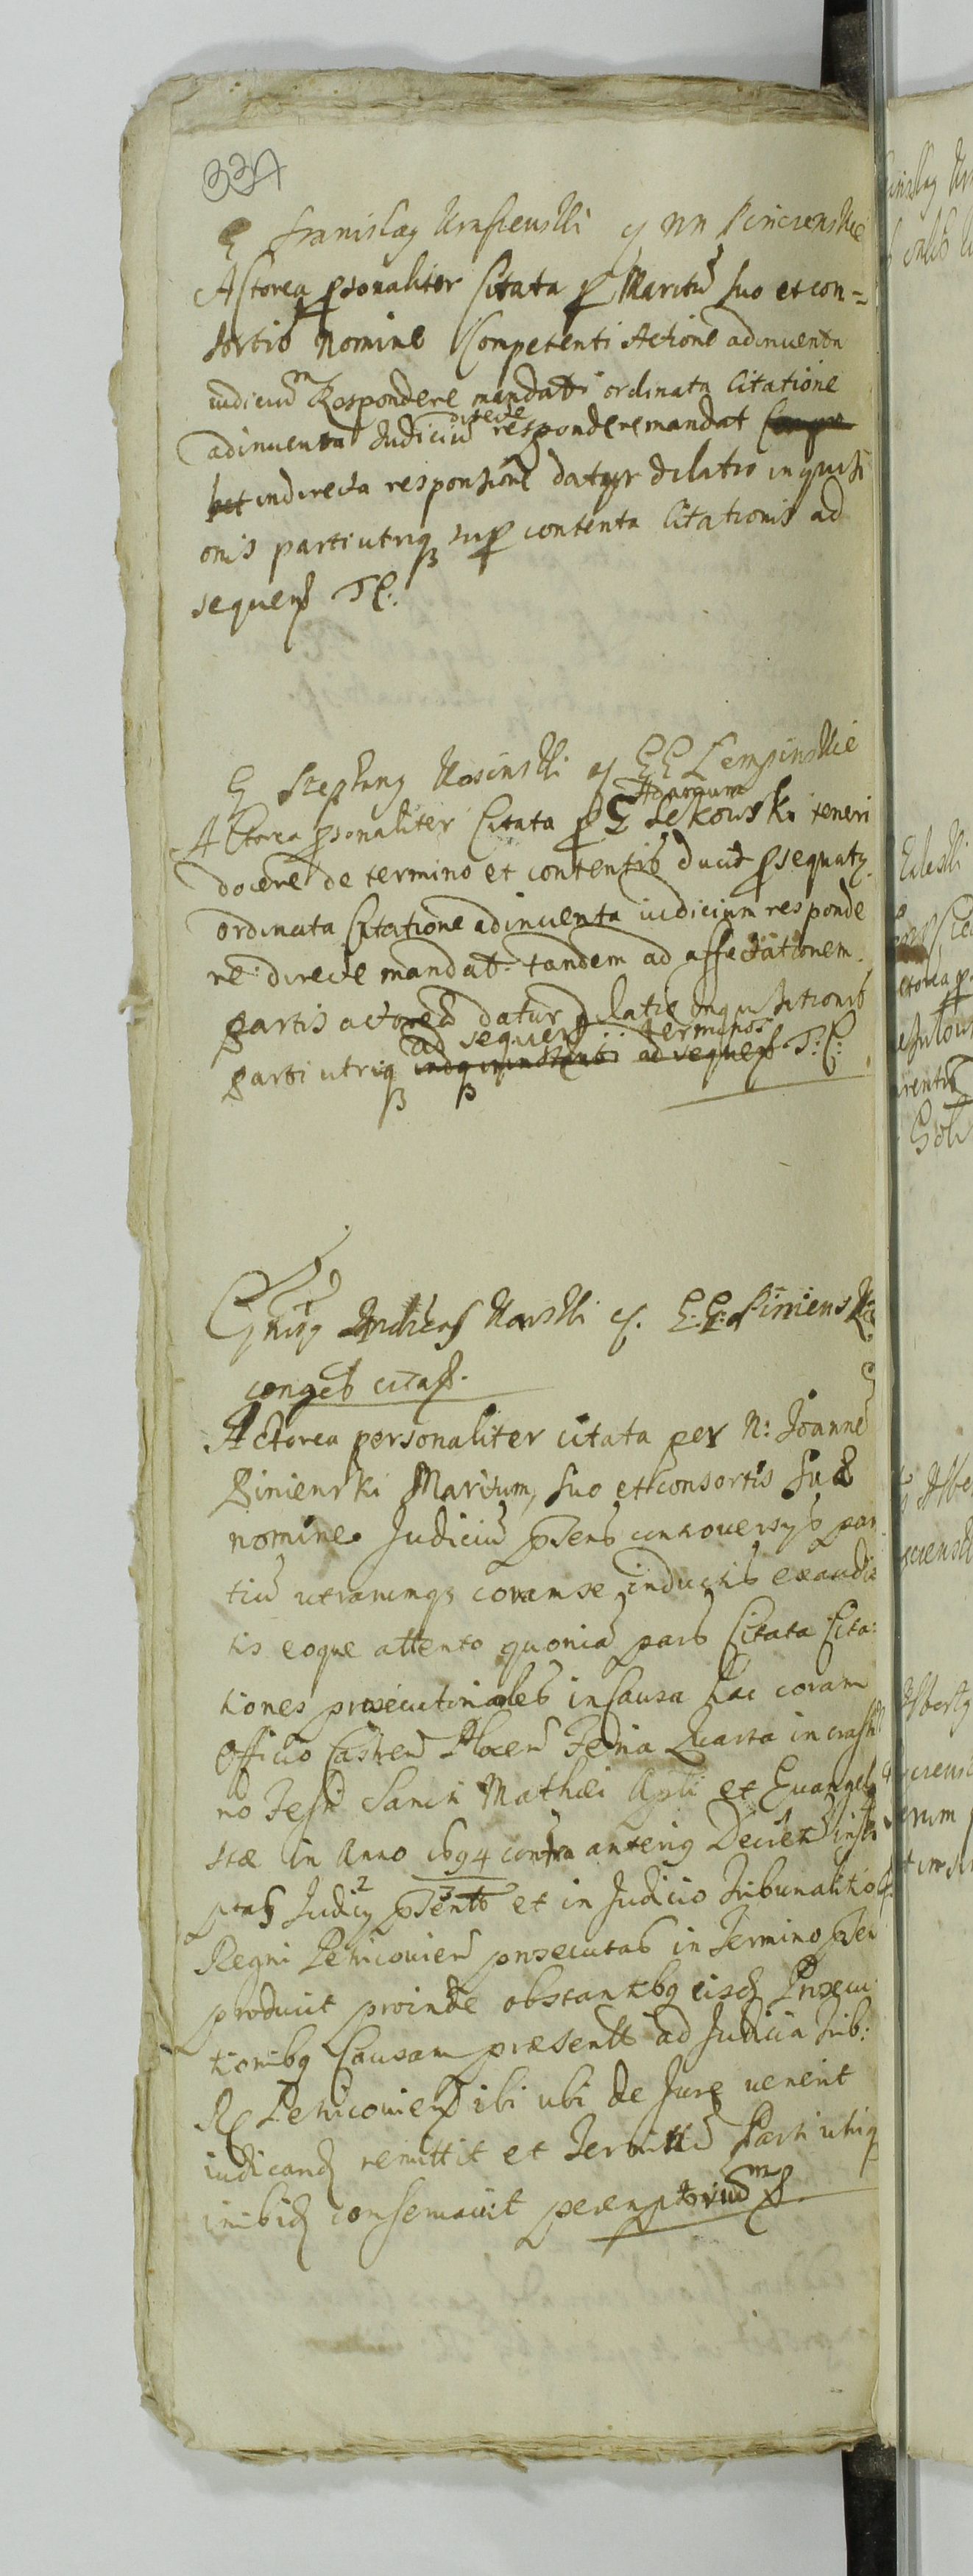 334
G Stanislaq Krasiewski c/ NN Pinienskie
Actorea psonaliter Citata p Maritu suo et con=
sortis Nomine Competenti Actione adinventa
iudiciu Respondere mandat ordinata Citatione
adinventa Judiciu directe respondere mandat
indirecta responsione datur dilatio inquisiti
onis parti utriq sup contenta Citationis ad
sequen TC.
G Stephang Kosinski c/ GG Lempinskie
Actorea psonaliter Citata p G Adamum Lekowski teneri
docere de termino et contentis ducit psequatq
ordinata Citatione adinventa iudicium responde
re directe mandat tandem ad affectationem
partis actorea datur dilatio inquisitionis
parti utriq ad sequen terminos T: C:
Gnisq Andreas Kowski c/. G.G. Piniensk
conges citas.
Actorea personaliter citata per N: Joanne
Pinienski Maritum, suo et consortis sua
nomine Judiciu psens controversys par
tiu utrarumqz coram se inductis exaudi
tis eoque attento quonia pars Citata Cita
tiones prosecutionales in Causa hac coram
officio Castren Plocen Feria Quarta in crasti
no Festi Sancti Mathæi Apli et Evangeli
stæ in Anno 1694 contra anteriq Decretu
ptas Judicy psentis et in Judicio Tribunalitio
Regni Petricovien prosecutas in Termino psen
produxit proinde obstantibq eisd Prosecu
tionibq Causam præsente ad Judicia Trib:
R Petricovien ibi ubi de Jure venerit
iudicand remittit et Terminu Parti utriq
inibid conservavit peremptorium